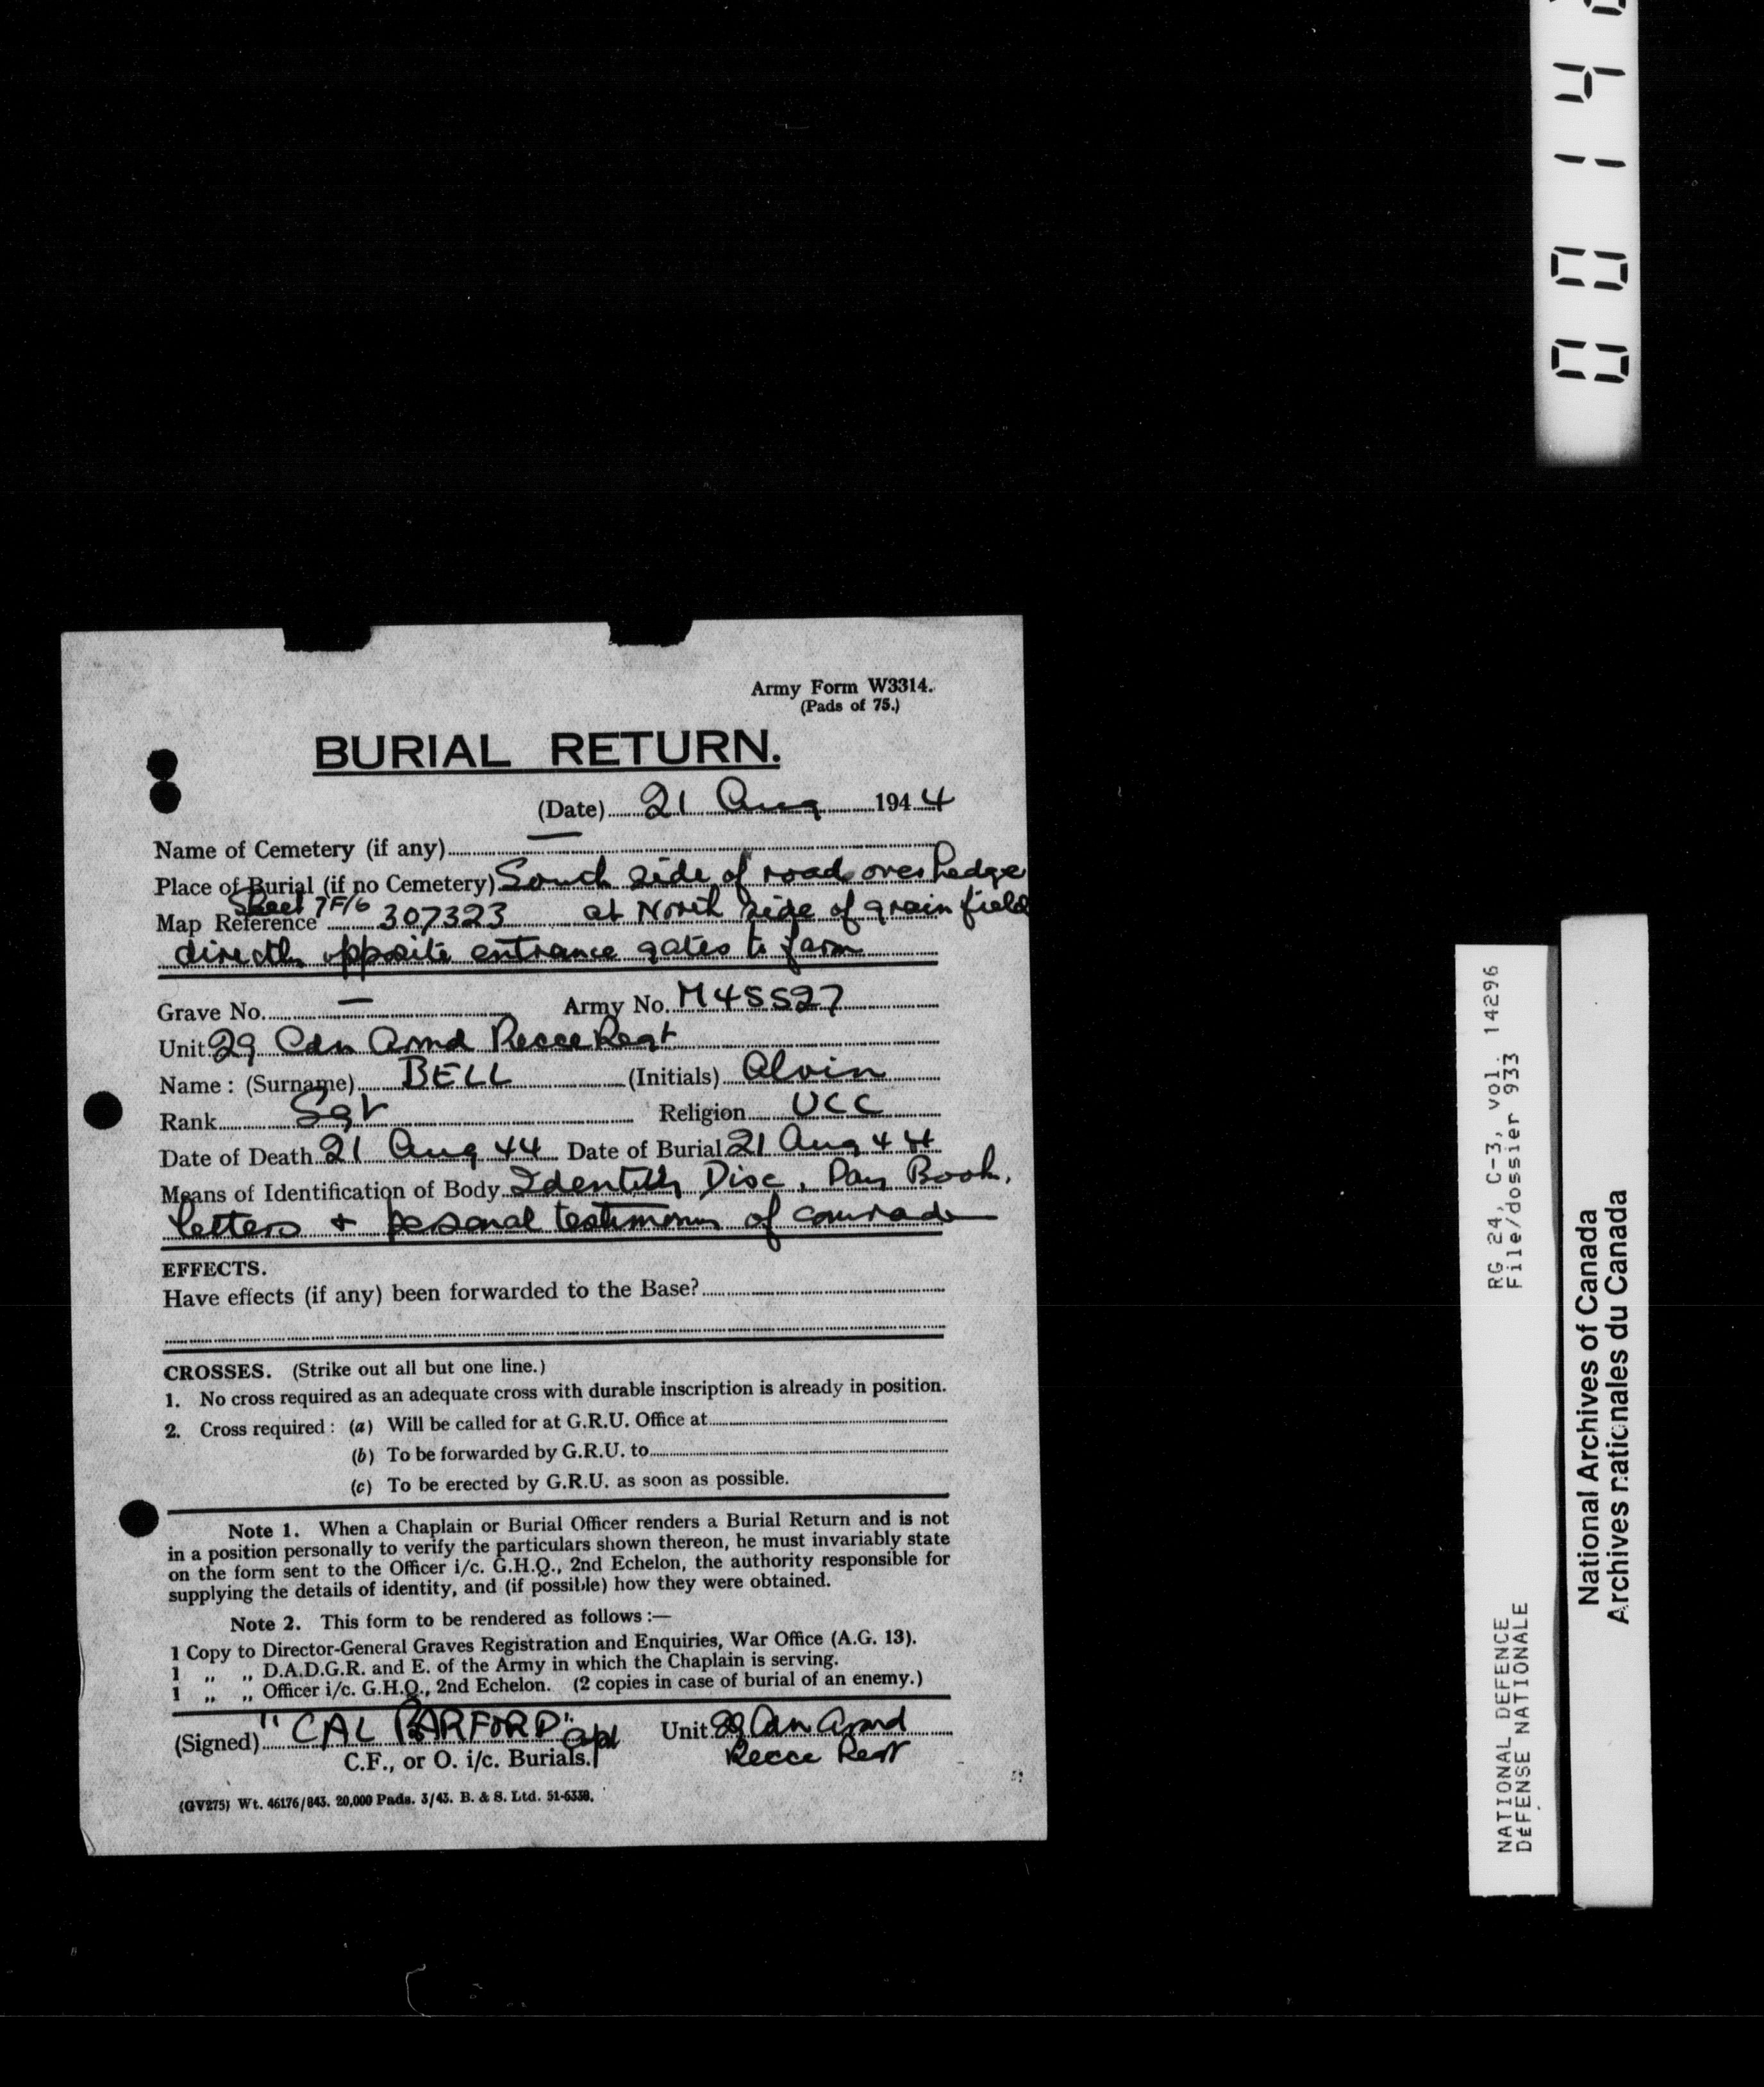 Army Form W3314.
(Pads of 75.)
BURIAL RETURN.
(Date) 21 Aug 1944
Name of Cemetery (if any) —
Place of Burial (if no Cemetery) South side of road over hedge
Sheet 7F/6
Map Reference 307323 at North side of grain field
directly opposite entrance gates to farm
Grave No. — Army No. M45527
Unit 29 Cdn Armd Recce Regt
Name : (Surname) BELL (Initials) Alvin
Rank Sgt Religion UCC
Date of Death 21 Aug 44 Date of Burial 21 Aug 44
Means of Identification of Body Identity Disc, Pay Book,
letters + personal testimony of comrade
EFFECTS.
Have effects (if any) been forwarded to the Base?
CROSSES. (Strike out all but one line.)
1. No cross required as an adequate cross with durable inscription is already in position.
2. Cross required : (a) Will be called for at G.R.U. Office at
(b) To be forwarded by G.R.U. to
(c) To be erected by G.R.U. as soon as possible.
Note 1. When a Chaplain or Burial Officer renders a Burial Return and is not
in a position personally to verify the particulars shown thereon, he must invariably state
on the form sent to the Officer i/c. G.H.Q., 2nd Echelon, the authority responsible for
supplying the details of identity, and (if possible) how they were obtained.
Note 2. This form to be rendered as follows :—
1 Copy to Director-General Graves Registration and Enquiries, War Office (A.G. 13).
1 „ „ D.A.D.G.R. and E. of the Army in which the Chaplain is serving.
1 „ „ Officer i/c. G.H.Q., 2nd Echelon. (2 copies in case of burial of an enemy.)
(Signed) "CAL BARFORD" Capt Unit 29 Cdn Armd
C.F., or O. i/c. Burials. Recce Regt
(GV275) Wt. 46176/843. 20,000 Pads. 3/43. B. & S. Ltd. 51-6338.
0014
RG 24, C-3, vol. 14296
File/dossier 933
NATIONAL DEFENCE
DÉFENSE NATIONALE
National Archives of Canada
Archives nationales du Canada